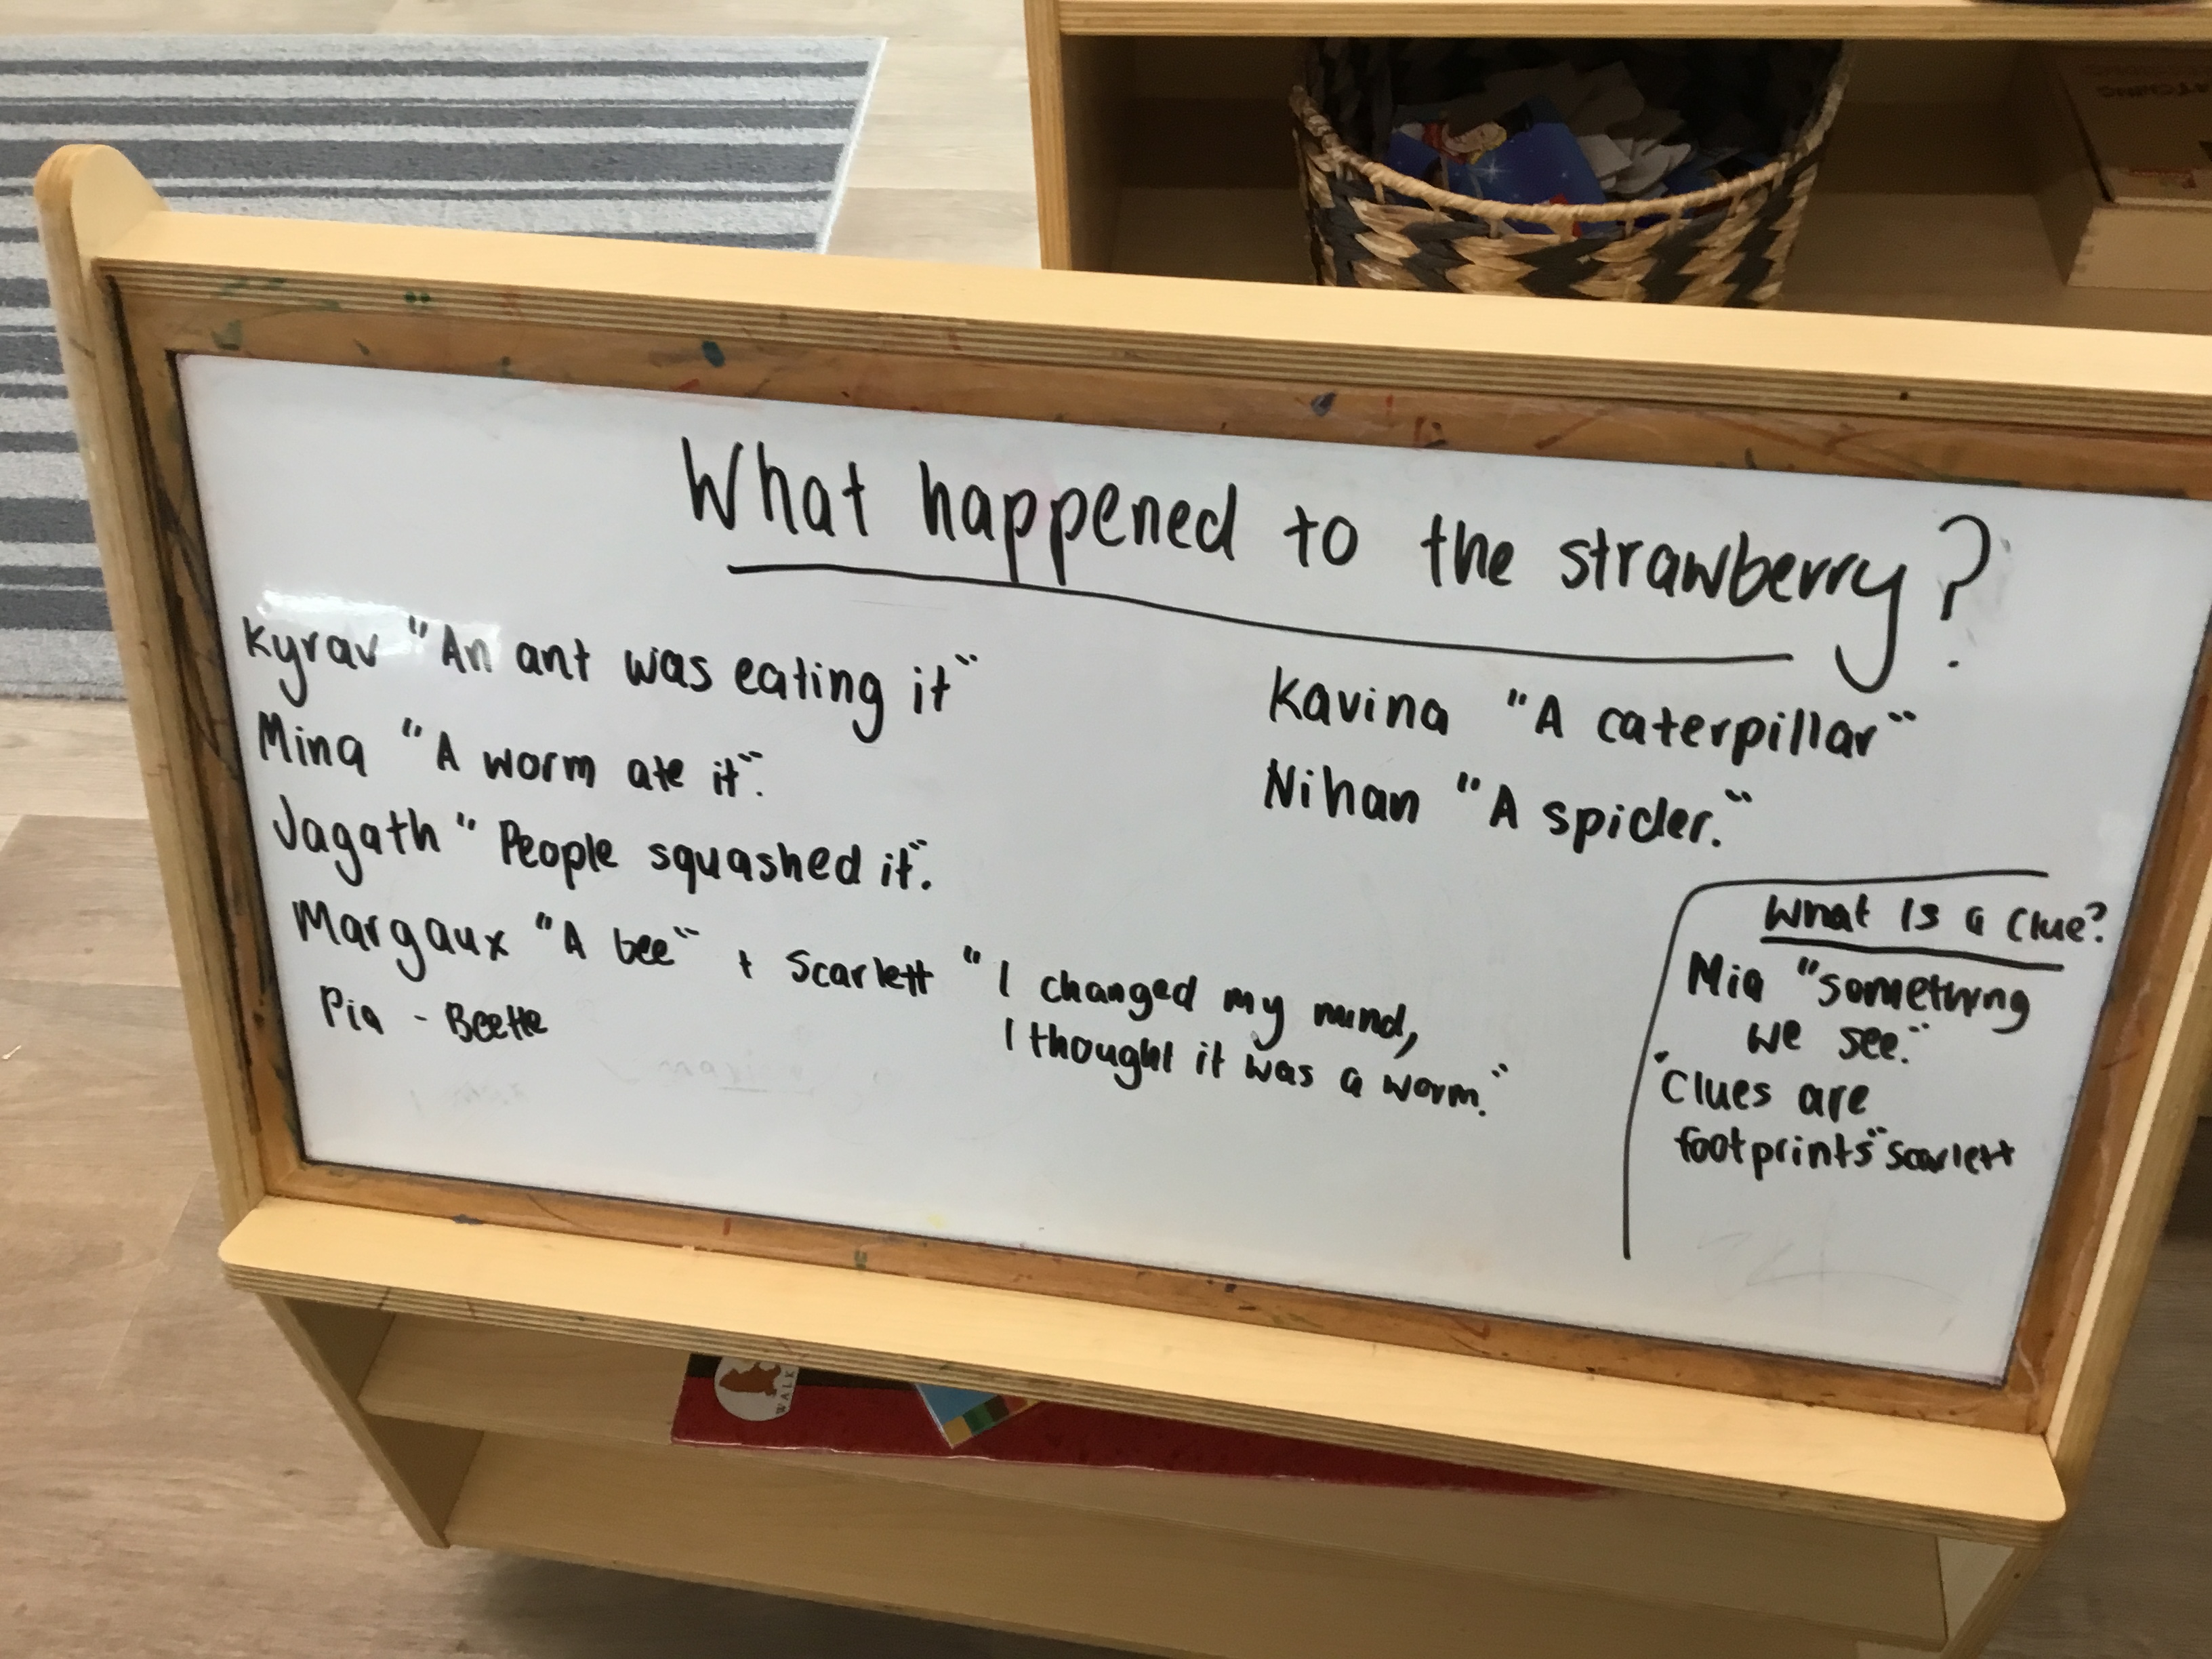 What happened to the strawberry?
Kyrav "An ant was eating it"
Mina "A worm ate it".
Jagath "People squashed it".
Margaux "A bee" + Scarlett "I changed my mind,
I thought it was a worm."
Pia - Beetle
Kavina "A caterpillar"
Nihan "A spider."
What is a clue?
Mia "something
we see."
"Clues are
footprints" Scarlett
WALK